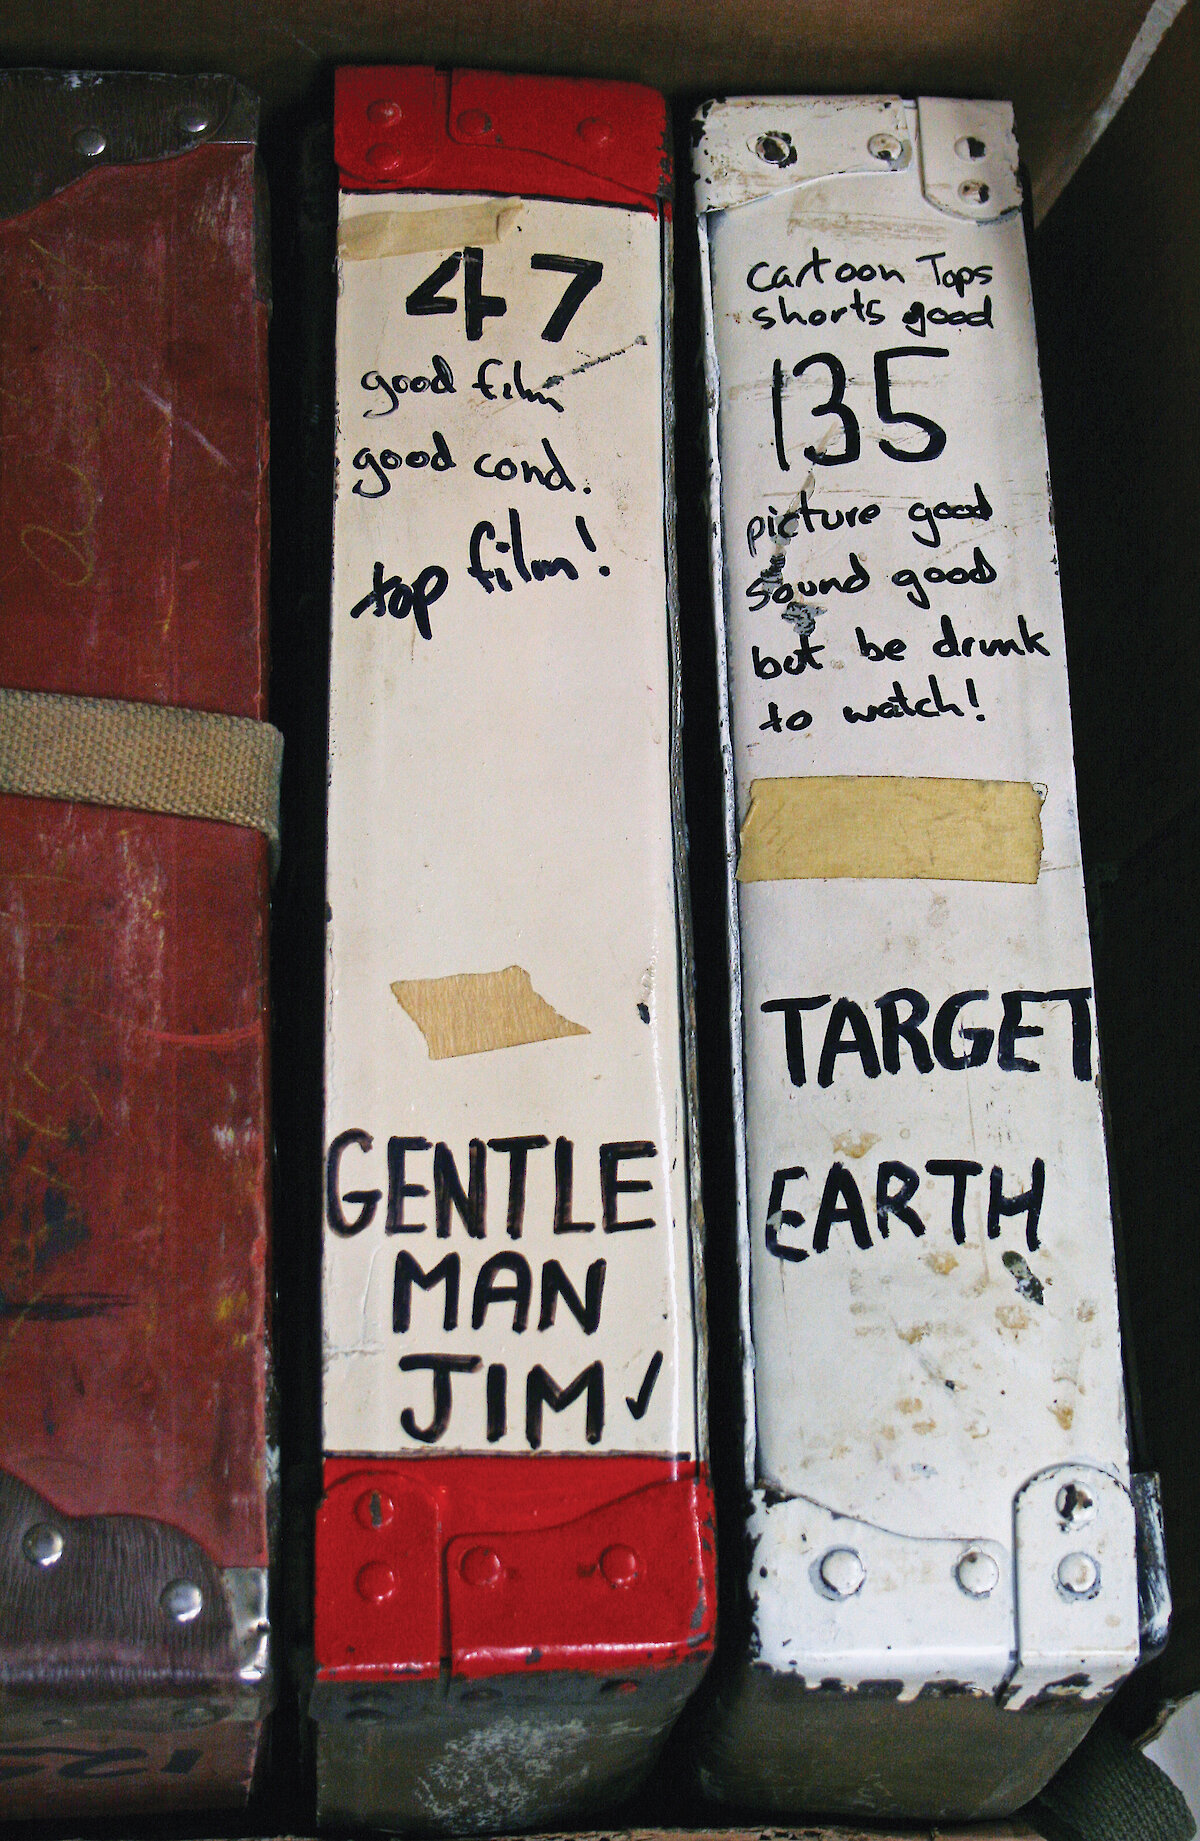 47
good film
good cond.
top film!
GENTLE
MAN
JIM✓
cartoon Tops
shorts good
135
picture good
sound good
but be drunk
to watch!
TARGET
EARTH